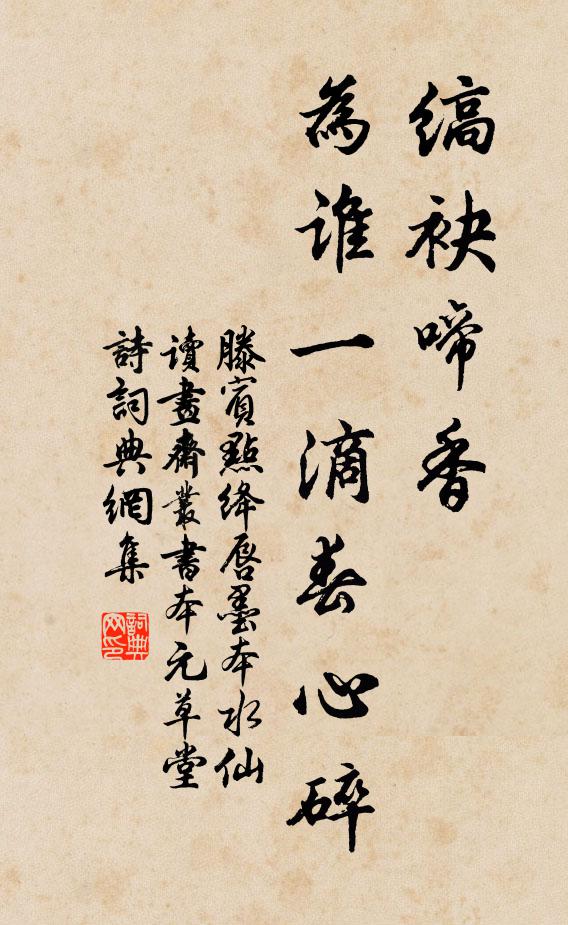 縞袂啼香
為誰一滴春心碎
滕賓點絳唇墨本水仙
讀畫齋叢書本元草堂
詩詞典網集
詞典網印